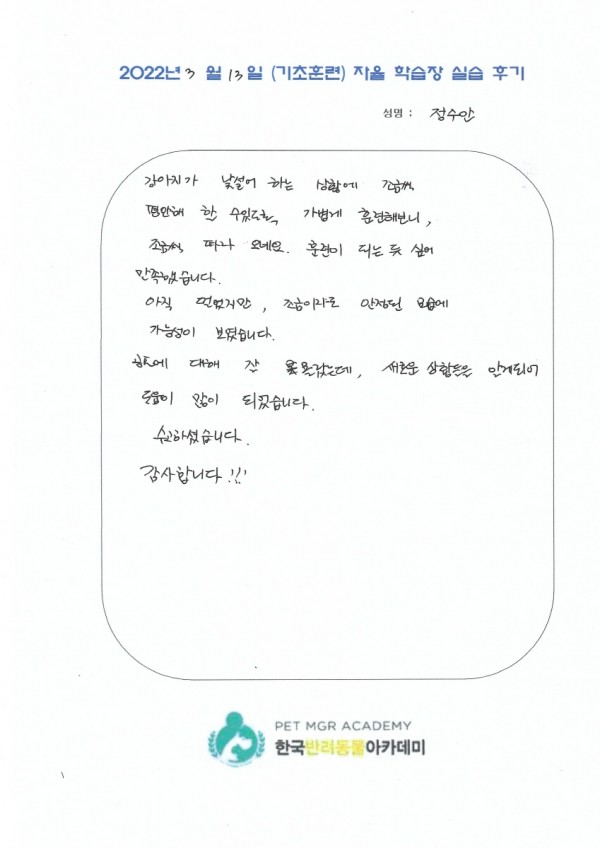 2022년 3 월 13일 (기초훈련) 자율 학습장 실습 후기
성명 : 정수안
강아지가 낯설어 하는 상황에 조금씩
편안해 할 수있도록, 가볍게 훈련해보니,
조금씩, 따라 오네요. 훈련이 되는 듯 싶어
만족했습니다.
아직 멀었지만, 조금이라도 안정된 모습에
가능성이 보였습니다.
에 대해 잘 몰랐는데, 새로운 상황들을 알게되어
도움이 많이 되었습니다.
수고하셨습니다.
감사합니다!!!
PET MGR ACADEMY
한국반려동물아카데미